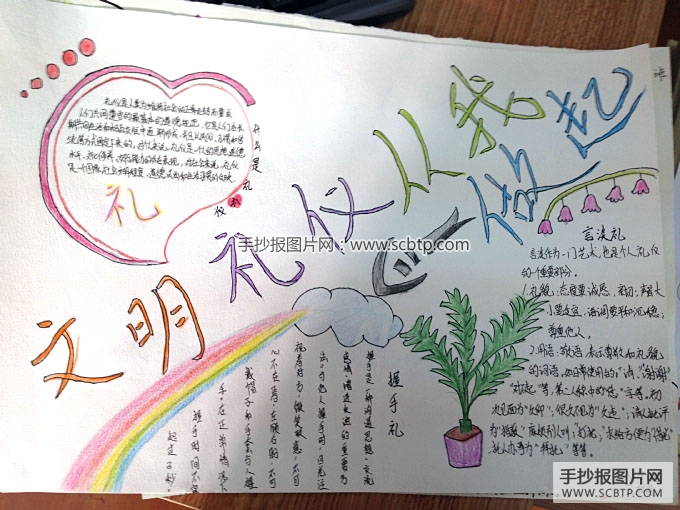 文明礼仪从我做起
什么是礼仪
礼仪是人类为维持社会的正常生活而要求
人们共同遵守的最基本的道德规范，它是人们在长
期共同生活和相互交往中逐渐形成，并且以风俗、习惯和传
统等方式固定下来的。对个人来说，礼仪是一个人的思想道德
水平、文化修养、交际能力的外在表现，对社会来说，礼仪
是一个国家社会文明程度、道德风尚和生活习惯的反映
礼
手抄报图片网：www.scbtp.com
言谈礼
言谈作为一门艺术，也是个人礼仪
的一个重要部分。
1.礼貌：态度要诚恳、亲切；声音大
小要适宜，语调要平和沉稳；
尊重他人。
2.用语：敬语，表示尊敬和礼貌
的词语，如日常使用的"请""谢谢"
"对不起"等，第二人称中的"您"字等，初
次见面为"久仰"；很久不见为"久违"；请人批评
为"指教"；麻烦别人叫"打扰"；求给方便为"借光"
托人办事为"拜托"等等。
握手礼
握手是一种沟通思想、交流
感情、增进友谊的重要方
式。与他人握手时，目光注
视着对方，微笑致意，不可
心不在焉、左顾右盼，不可
戴帽子和手套与人握
手。在正常情况下
握手时间不宜
超过3秒
手抄报图片网
WWW.SCBTP.COM